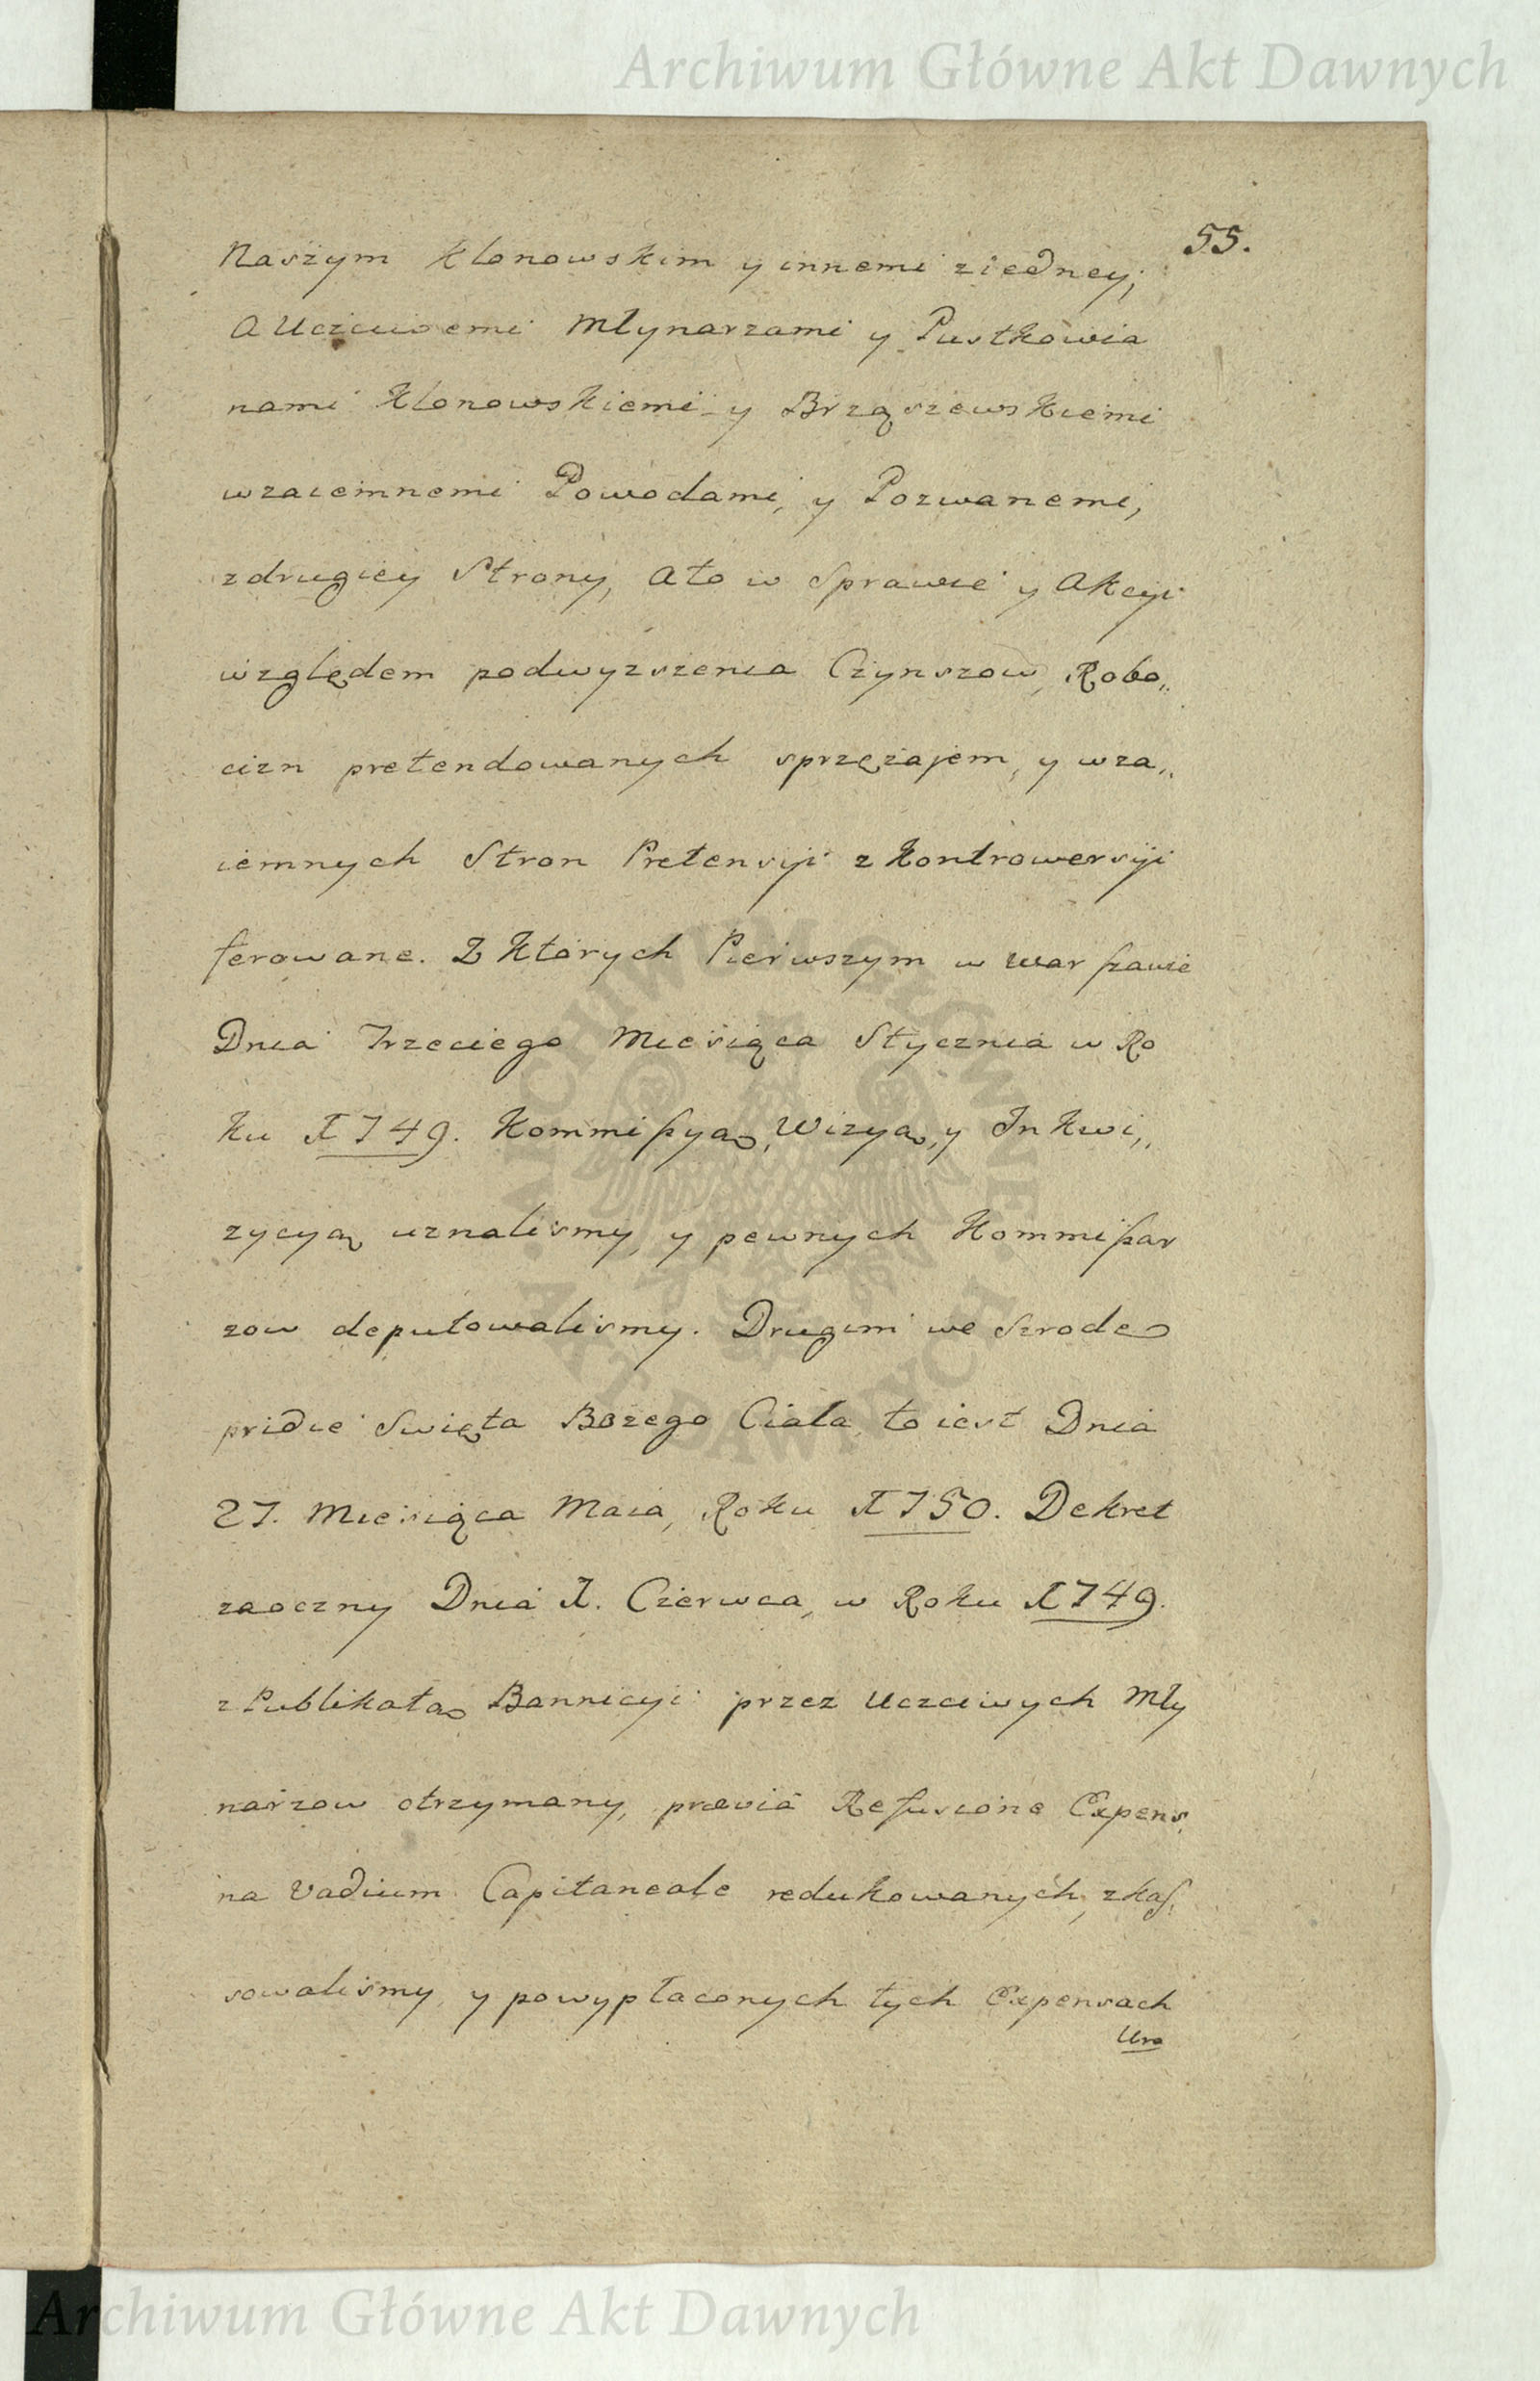 Archiwum Główne Akt Dawnych
55.
Naszym Klonowskim y innemi ziedney;
A Uczciwemi Młynarzami y Pustkowia
nami Klonowskiemi y Brząszewskiemi
wzaiemnemi Powodami, y Pozwanemi,
zdrugiey Strony, Ato w Sprawie y Akcyi
względem podwyzszenia Czynszow, Robo„
cizn pretendowanych sprzężajem, y wza„
iemnych Stron Pretensyi z Kontrowersyi
ferowane. Z Ktorych Pierwszym w Warszawie
Dnia Trzeciego Miesiąca Stycznia w Ro
ku 1749. Kommißyą, Wizyą, y Inkwi„
zycyą uznalismy, y pewnych Kommißar
zow deputowalismy. Drugim we Szrodę
pridie Swięta Bożego Ciała, to iest Dnia
27. Miesiąca Maia, Roku 1750. Dekret
zaoczny Dnia 1. Czerwca, w Roku 1749.
z Publikatą Bannicyi przez Uczciwych Mły
narzow otrzymany, prævia Refusione Expens.
na Vadium Capitaneale redukowanych, zkas„
sowalismy, y powypłaconych tych Expensach
Uro
ARCHIWUM GŁÓWNE AKT DAWNYCH
Archiwum Główne Akt Dawnych